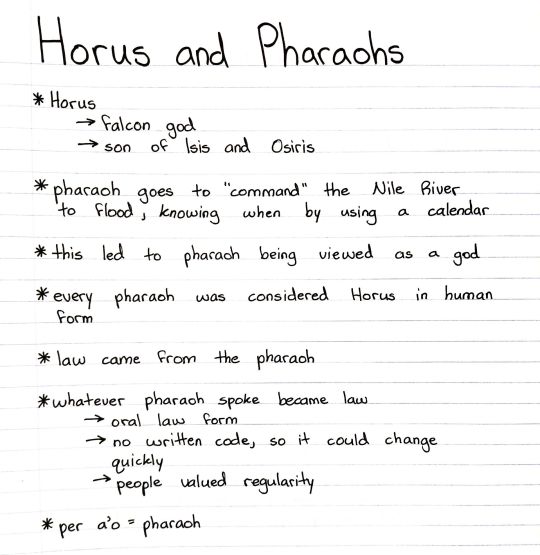 Horus and Pharaohs
* Horus
→ falcon god
→ son of Isis and Osiris
* pharaoh goes to "command" the Nile River
to flood, knowing when by using a calendar
* this led to pharaoh being viewed as a god
* every pharaoh was considered Horus in human
form
* law came from the pharaoh
* whatever pharaoh spoke became law
→ oral law form
→ no written code, so it could change
quickly
→ people valued regularity
* per a'o = pharaoh